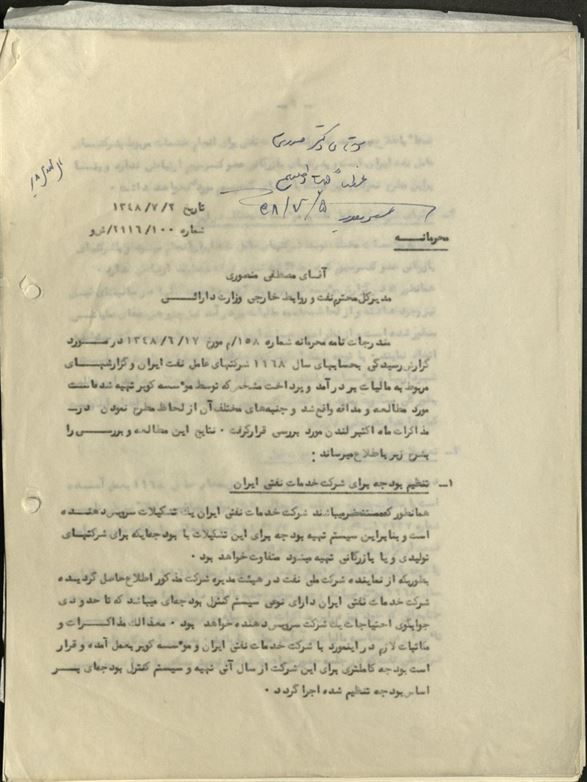 تاریخ ۱۳۴۸/۷/۲
شماره ۲۱۱۶/۱۰۰/ش‌و
محرمانه
آقای مصطفی منصوری
مدیرکل محترم نفت و روابط خارجی وزارت دارائی
مندرجات نامه محرمانه شماره ۱۵۸/م مورخ ۱۳۴۸/۶/۱۷ در مورد
گزارش رسیدگی بحسابهای سال ۱۹۶۸ شرکتهای عامل نفت ایران و گزارشهای
مربوط به مالیات بر درآمد و پرداخت مشخص که توسط موسسه کوپر تهیه شده است
مورد مطالعه و مداقه واقع شد و جنبه‌های مختلف آن از لحاظ مطرح نمودن در
مذاکرات ماه اکتبر لندن مورد بررسی قرار گرفت ۰ نتایج این مطالعه و بررسی را
بشرح زیر باطلاع میرساند :
۱- تنظیم بودجه برای شرکت خدمات نفتی ایران
همانطور که مستحضر میباشند شرکت خدمات نفتی ایران یک تشکیلات سرویس دهنده
است و بنابراین سیستم تهیه بودجه برای این تشکیلات با بودجه‌ایکه برای شرکتهای
تولیدی و یا بازرگانی تهیه میشود متفاوت خواهد بود ۰
بطوریکه از نماینده شرکت ملی نفت در هیئت مدیره شرکت مذکور اطلاع حاصل گردیده
شرکت خدمات نفتی ایران دارای نوعی سیستم کنترل بودجه‌ای میباشد که تا حدودی
جوابگوی احتیاجات یک شرکت سرویس دهنده خواهد بود ۰ معذالک مذاکرات و
مکاتبات لازم در اینمورد با شرکت خدمات نفتی ایران و موسسه کوپر بعمل آمده و قرار
است بودجه کاملتری برای این شرکت از سال آتی تهیه و سیستم کنترل بودجه‌ای بر
اساس بودجه تنظیم شده اجرا گردد ۰